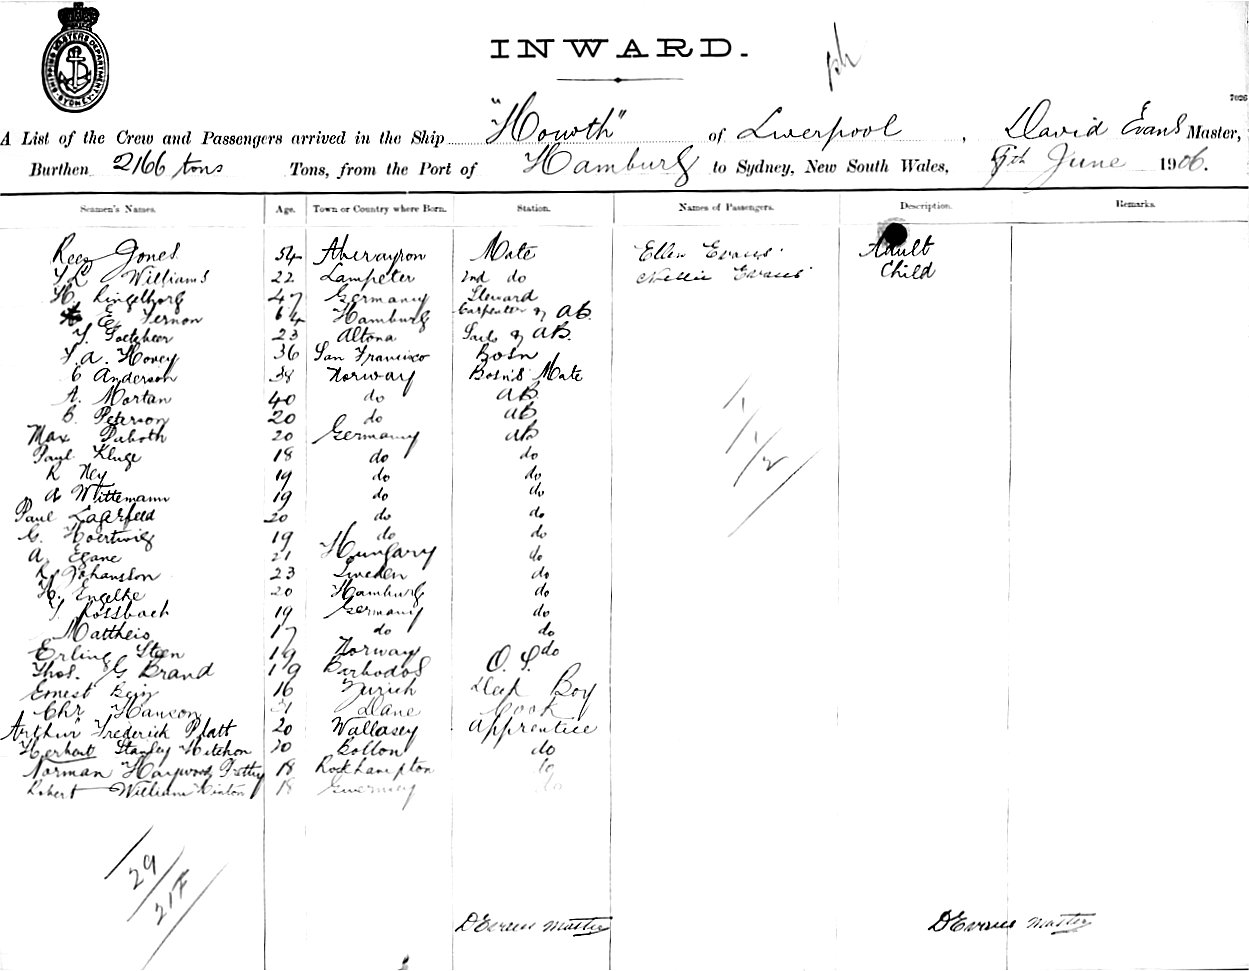 SHIPPING MASTERS DEPARTMENT SYDNEY
INWARD.
7026
A List of the Crew and Passengers arrived in the Ship "Howth" of Liverpool, David Evans Master,
Burthen 2166 tons Tons, from the Port of Hamburg to Sydney, New South Wales, 9th June 1906.
Seamen's Names. Age. Town or Country where Born. Station. Names of Passengers. Description. Remarks.
Rees Jones 54 Aberayron Mate Ellen Evans Adult
Williams 22 Lampeter 2nd do Nellie Evans Child
H. Ringelborg 47 Germany Steward
E. Vernon 64 Hamburg Carpenter & AB.
23 Altona Sails & AB.
F. A. Hovey 36 San Francisco Bosn
C Anderson 38 Norway Bosn's Mate
A. Mortan 40 do AB
C. Peterson 20 do AB
Max Duboth 20 Germany AB
Paul Kluge 18 do do
R Ney 19 do do
A Wittemann 19 do do
Paul Lagerfeld 20 do do
G. Hoertwig 19 do do
A. Egane 21 Hungary do
R. Johansson 23 Sweden do
H. Engelke 20 Hamburg do
F. Rossbach 19 Germany do
Mattheis 17 do do
Erling Steen 19 Norway do
Thos. G Brand 19 Barbados O.S.
Ernest Bein 16 Zurich Deck Boy
Chr Hanson 31 Dane Cook
Arthur Frederick Platt 20 Wallasey Apprentice
Herbert Stanley Hitchon 20 Bolton do
Norman Haywood Pretty 18 Rockhampton do
Robert William Hinton 18 Guernsey do
1/1/2
29
21F
D Evans Master D Evans Master